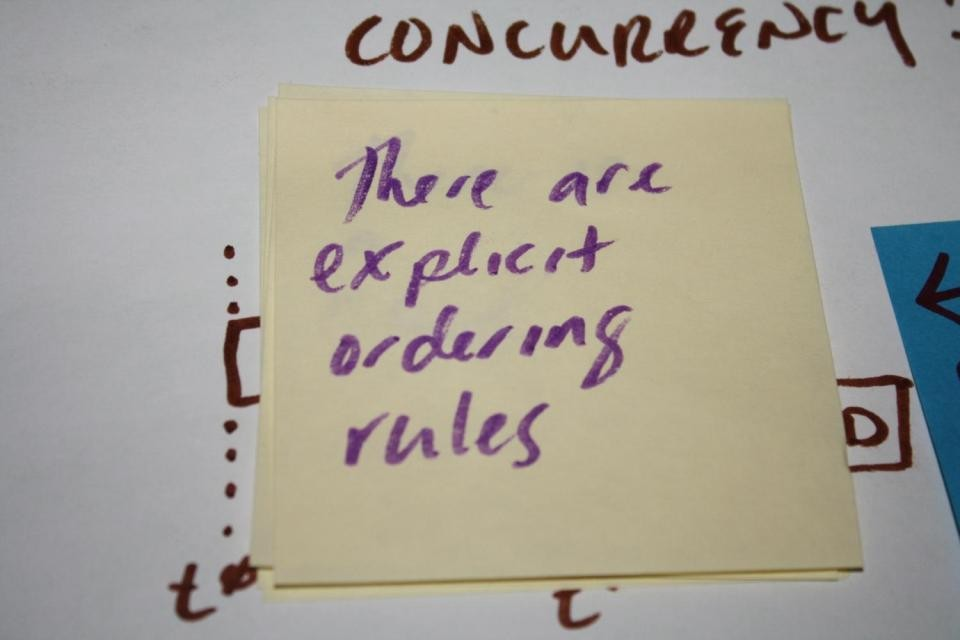 CONCURRENCY
There are
explicit
ordering
rules
D
t0
t